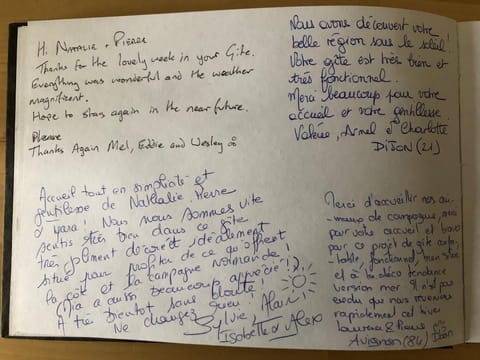 Hi NATALIE + PIERRE
Thanks for the lovely week in your Gite.
Everything was wonderful and the weather
magnificent.
Hope to stay again in the near future.
Please
Thanks Again Mel, Eddie and Wesley
Nous avons découvert votre
belle région sous le soleil!
Votre gîte est très bien et
très fonctionnel.
Merci beaucoup pour votre
accueil et votre gentillesse.
Valérie, Armel et Charlotte
DIJON (21)
Accueil tout en simplicité et
gentillesse de Nathalie, Pierre
Nous nous sommes vite
sentis très bien dans ce gîte
très joliment décoré et idéalement
situé pour profiter de ce qu'offrent
la côte et la campagne normande!
a aussi beaucoup apprécié!
À très bientôt sans doute!
Ne changez rien!
Sylvie, Alain
Isabelle et Alex
Merci d'accueillir nos
de campagne,
pour votre accueil et bravo
pour ce projet de gîte
fonctionnel, bien situé
et à la déco tendance
version mer. Il n'est pas
exclu que nous revenions
rapidement cet hiver
Laurence & Pierre
Avignon (84)